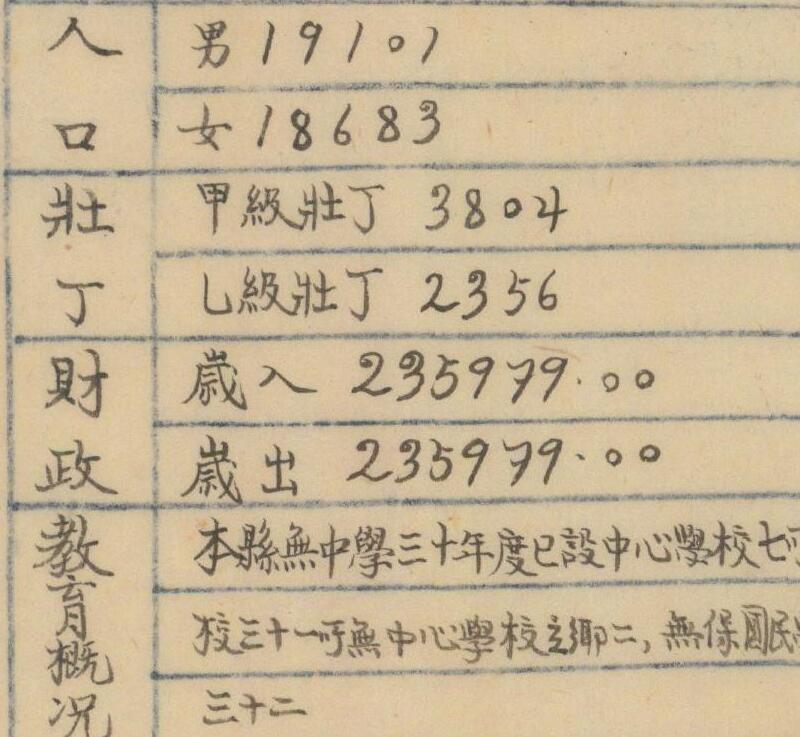 人口
男19101
女18683
壯丁
甲級壯丁 3804
乙級壯丁 2356
財政
歲入 235979.00
歲出 235979.00
教育概况
本縣無中學三十年度已設中心學校七
校三十一所無中心學校之鄉二,無保國民
三十二